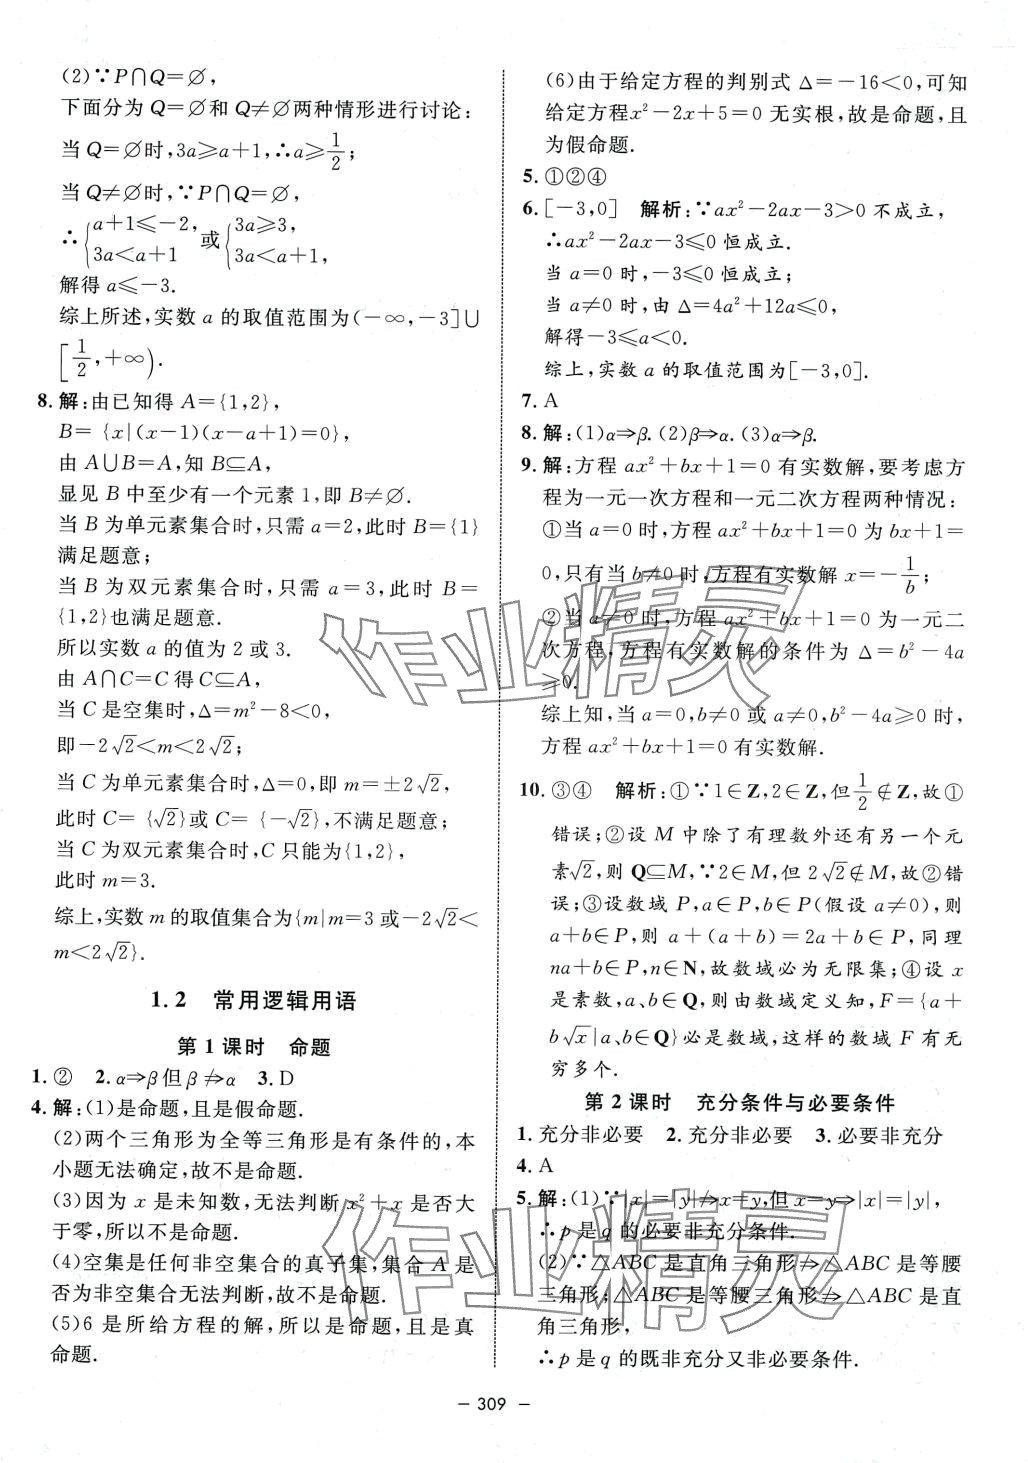 (2)∵P∩Q=∅,
下面分为 Q=∅和 Q≠∅两种情形进行讨论:
当 Q=∅时,3a≥a+1,∴a≥1/2;
当 Q≠∅时,∵P∩Q=∅,
∴{a+1≤-2, 3a<a+1 或{3a≥3, 3a<a+1,
解得 a≤-3.
综上所述,实数 a 的取值范围为(-∞,-3]∪
[1/2,+∞).
8. 解:由已知得 A={1,2},
B={x|(x-1)(x-a+1)=0},
由 A∪B=A,知 B⊆A,
显见 B 中至少有一个元素 1,即 B≠∅.
当 B 为单元素集合时,只需 a=2,此时 B={1}
满足题意;
当 B 为双元素集合时,只需 a=3,此时 B=
{1,2}也满足题意.
所以实数 a 的值为 2 或 3.
由 A∩C=C 得 C⊆A,
当 C 是空集时,Δ=m²-8<0,
即-2√2<m<2√2;
当 C 为单元素集合时,Δ=0,即 m=±2√2,
此时 C={√2}或 C={-√2},不满足题意;
当 C 为双元素集合时,C 只能为{1,2},
此时 m=3.
综上,实数 m 的取值集合为{m|m=3 或-2√2<
m<2√2}.
1.2 常用逻辑用语
第 1 课时 命题
1. ② 2. α⇒β但β⇏α 3. D
4. 解:(1)是命题,且是假命题.
(2)两个三角形为全等三角形是有条件的,本
小题无法确定,故不是命题.
(3)因为 x 是未知数,无法判断 x²+x 是否大
于零,所以不是命题.
(4)空集是任何非空集合的真子集,集合 A 是
否为非空集合无法判断,故不是命题.
(5)6 是所给方程的解,所以是命题,且是真
命题.
(6)由于给定方程的判别式 Δ=-16<0,可知
给定方程x²-2x+5=0 无实根,故是命题,且
为假命题.
5. ①②④
6. [-3,0] 解析:∵ax²-2ax-3>0 不成立,
∴ax²-2ax-3≤0 恒成立.
当 a=0 时,-3≤0 恒成立;
当 a≠0 时,由 Δ=4a²+12a≤0,
解得-3≤a<0.
综上,实数 a 的取值范围为[-3,0].
7. A
8. 解:(1)α⇒β.(2)β⇒α.(3)α⇒β.
9. 解:方程 ax²+bx+1=0 有实数解,要考虑方
程为一元一次方程和一元二次方程两种情况:
①当 a=0 时,方程 ax²+bx+1=0 为 bx+1=
0,只有当 b≠0 时,方程有实数解 x=-1/b;
②当 a≠0 时,方程 ax²+bx+1=0 为一元二
次方程,方程有实数解的条件为 Δ=b²-4a
≥0.
综上知,当 a=0,b≠0 或 a≠0,b²-4a≥0 时,
方程 ax²+bx+1=0 有实数解.
10. ③④ 解析:①∵1∈Z,2∈Z,但1/2∉Z,故①
错误;②设 M 中除了有理数外还有另一个元
素√2,则 Q⊆M,∵2∈M,但 2√2∉M,故②错
误;③设数域 P,a∈P,b∈P(假设 a≠0),则
a+b∈P,则 a+(a+b)=2a+b∈P,同理
na+b∈P,n∈N,故数域必为无限集;④设 x
是素数,a、b∈Q,则由数域定义知,F={a+
b√x|a、b∈Q}必是数域,这样的数域 F 有无
穷多个.
第 2 课时 充分条件与必要条件
1. 充分非必要 2. 充分非必要 3. 必要非充分
4. A
5. 解:(1)∵|x|=|y|⇏x=y,但 x=y⇒|x|=|y|,
∴p 是 q 的必要非充分条件.
(2)∵△ABC 是直角三角形⇏△ABC 是等腰
三角形;△ABC 是等腰三角形⇏△ABC 是直
角三角形,
∴p 是 q 的既非充分又非必要条件.
- 309 -
作业精灵
作业精灵